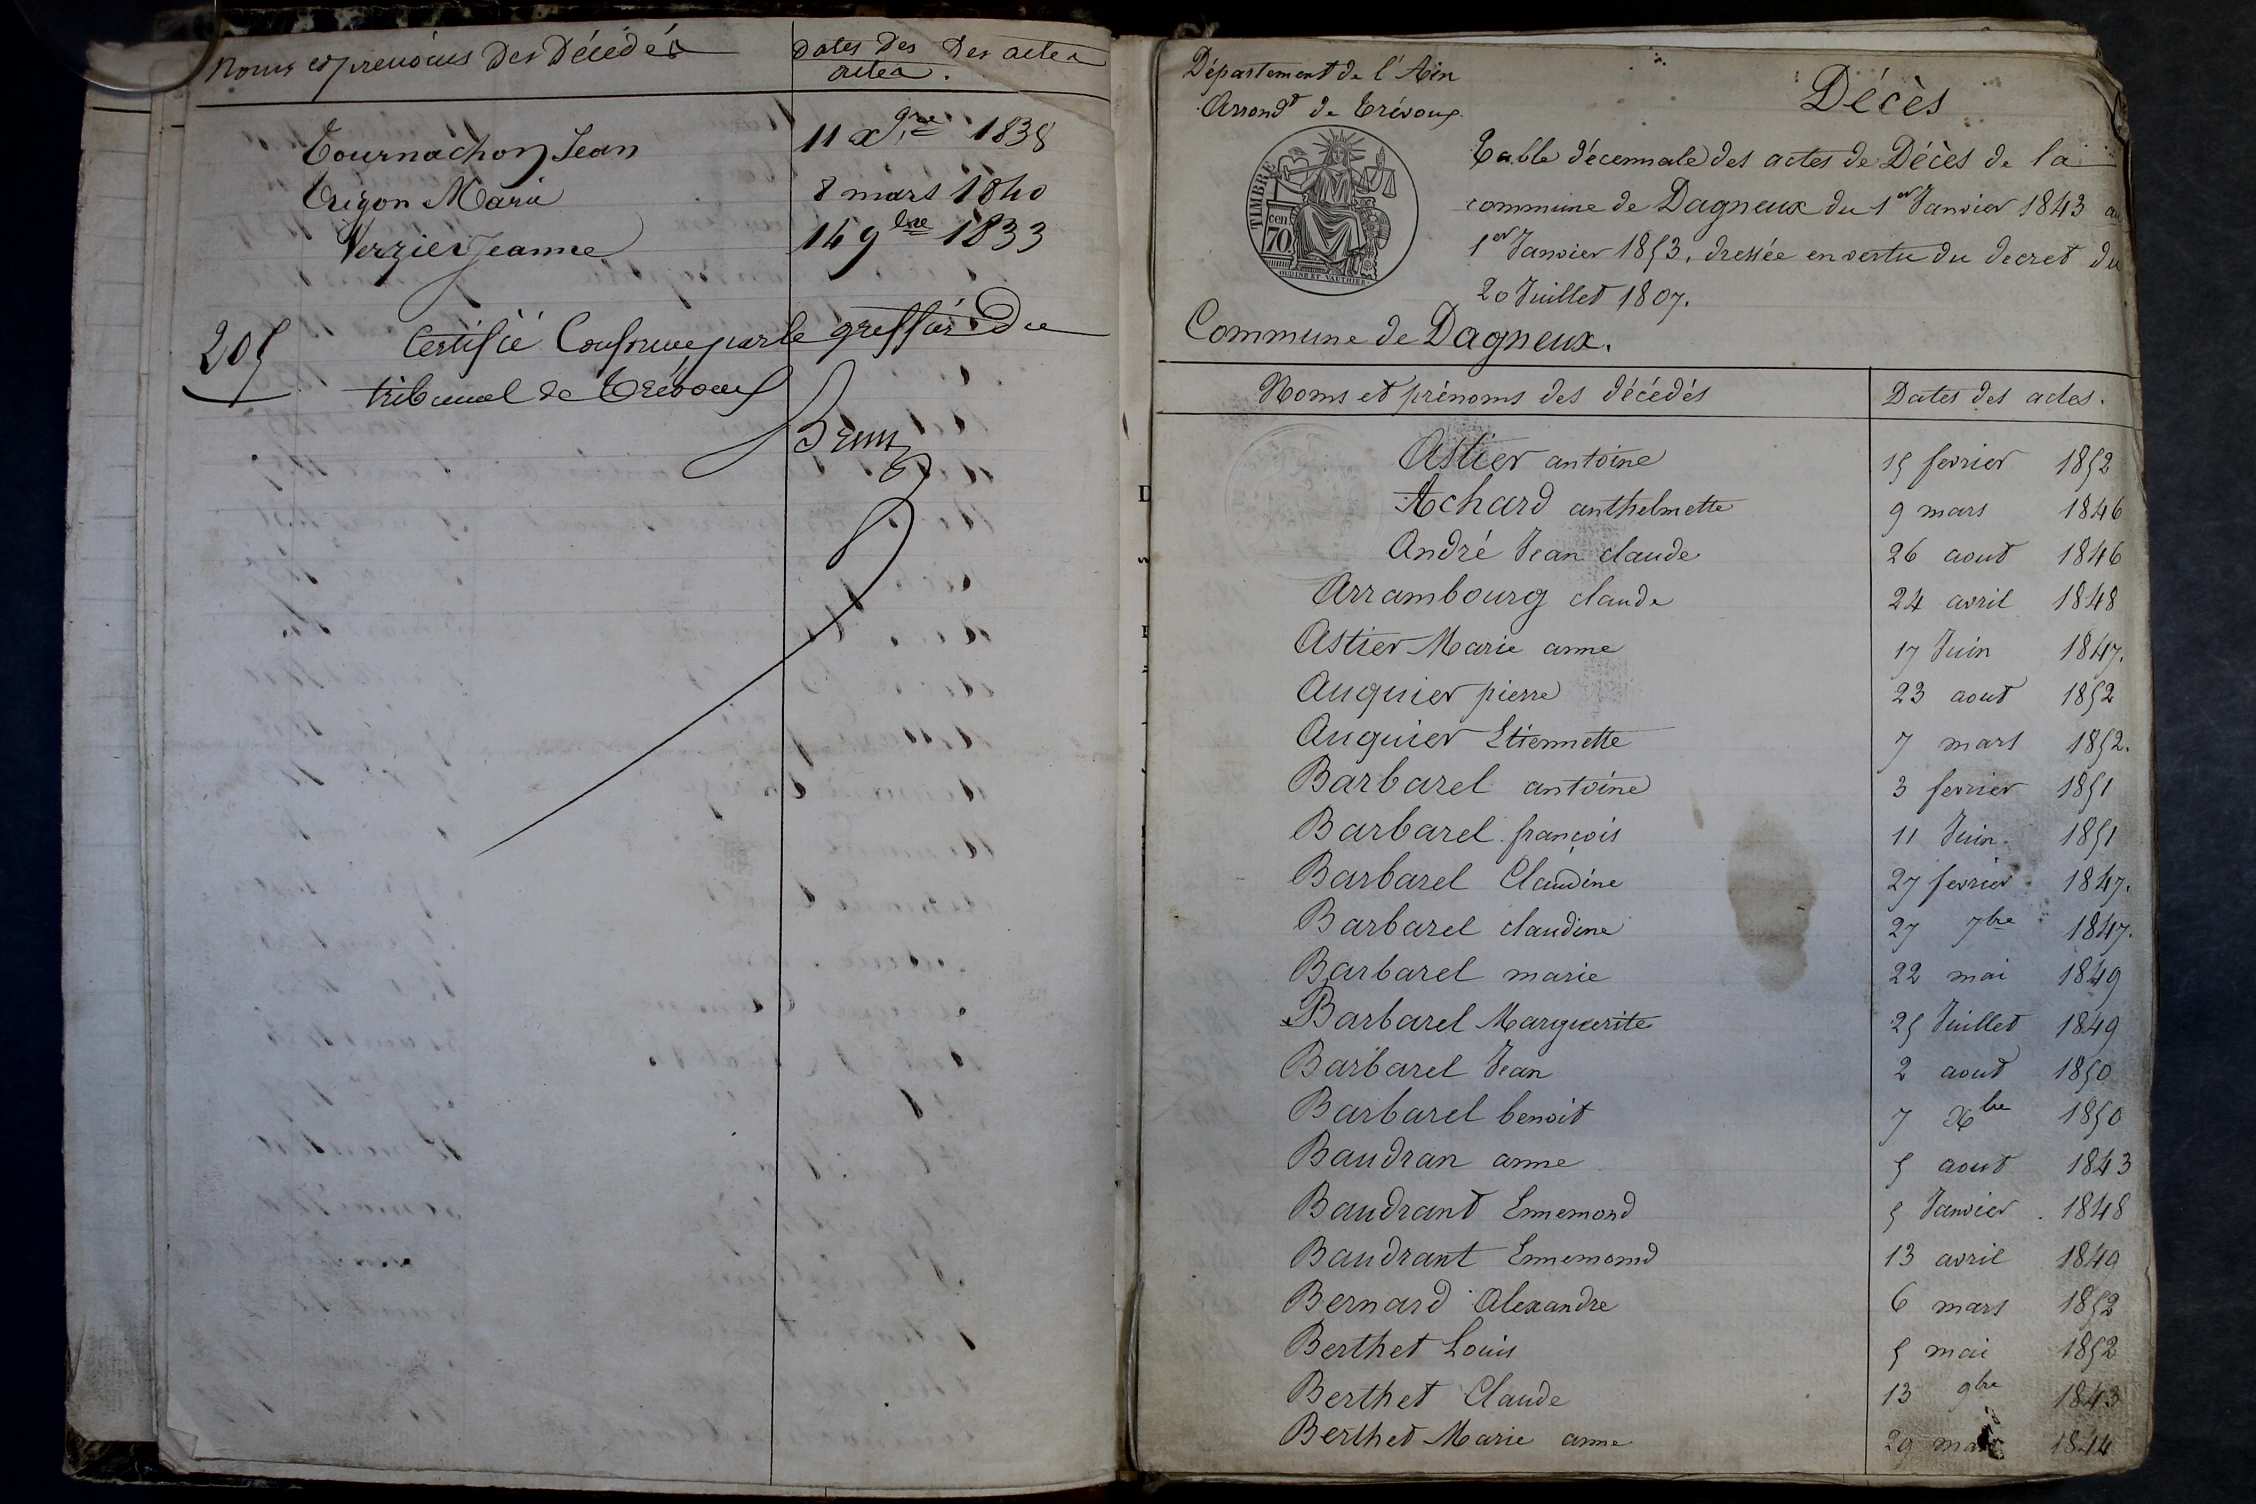 Noms et prénoms des Décédés
Dates des des actes
actes.
Tournachon Jean 11 xbre 1838
Trigon Marie 8 mars 1840
Verzier Jeanne 14 9bre 1833
205
Certifié Conforme par le greffier du
tribunal de Trévoux
Département de l'Ain
Arrondt de Trévoux
Décès
TIMBRE
cen
70
OUDINÉ ET VAUTHIER
Table décennale des actes de Décès de la
commune de Dagneux du 1er Janvier 1843 au
1er Janvier 1853, dressée en vertu du decret du
20 Juillet 1807.
Commune de Dagneux.
Noms et prénoms des décédés Dates des actes.
Astier antoine 15 fevrier 1852
Achard anthelmette 9 mars 1846
André Jean claude 26 aout 1846
Arrambourg claude 24 avril 1848
Astier Marie anne 17 Juin 1847.
Auquier pierre 23 aout 1852
Auquier Etiennette 7 mars 1852.
Barbarel antoine 3 fevrier 1851
Barbarel françois 11 Juin 1851
Barbarel Claudine 27 fevrier 1847.
Barbarel claudine 27 7bre 1847.
Barbarel marie 22 mai 1849
Barbarel Marguerite 25 Juillet 1849
Barbarel Jean 2 aout 1850
Barbarel benoit 7 Xbre 1850
Baudran anne 5 aout 1843
Baudrant Ennemond 5 Janvier 1848
Baudrant Ennemond 13 avril 1849
Bernard Alexandre 6 mars 1852
Berthet Louis 5 mai 1852
Berthet Claude 13 9bre 1843
Berthet Marie anne 29 1844